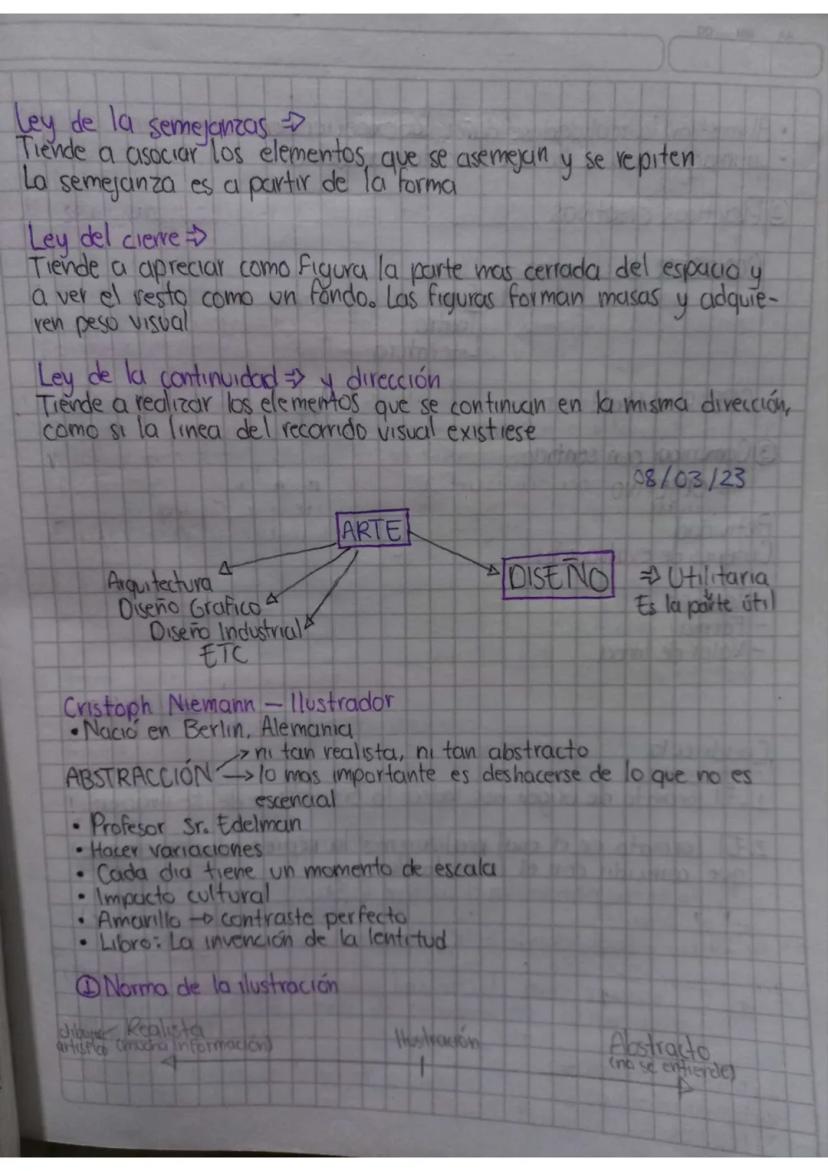 Ley de la semejanzas ⇒
Tiende a asociar los elementos que se asemejan y se repiten
La semejanza es a partir de la forma
Ley del cierre ⇒
Tiende a apreciar como figura la parte mas cerrada del espacio y
a ver el resto como un fondo. Las figuras forman masas y adquie-
ren peso visual
Ley de la continuidad ⇒ y dirección
Tiende a realizar los elementos que se continuan en la misma dirección,
como si la linea del recorrido visual existiese
08/03/23
ARTE
Arquitectura
Diseño Grafico
Diseño Industrial
ETC
DISEÑO ⇒ Utilitaria
Es la parte útil
Cristoph Niemann - Ilustrador
• Nació en Berlin, Alemania
→ ni tan realista, ni tan abstracto
ABSTRACCIÓN → lo mas importante es deshacerse de lo que no es
escencial
• Profesor Sr. Edelman
• Hacer variaciones
• Cada dia tiene un momento de escala
• Impacto cultural
• Amarillo → contraste perfecto
• Libro: La invención de la lentitud
① Norma de la ilustración
dibujo artístico
Realista
(mucha información)
Ilustración
Abstracto
(no se entiende)